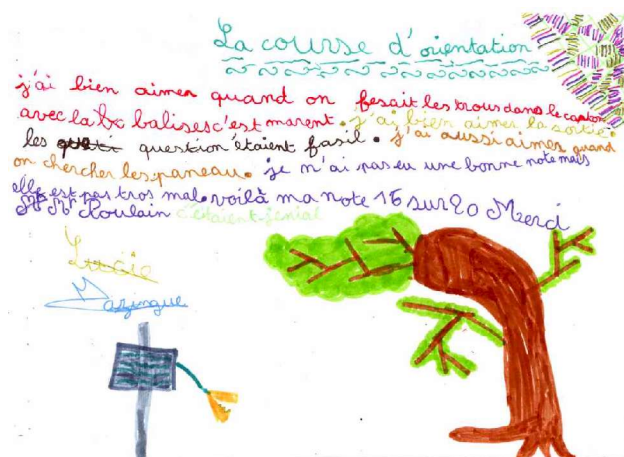 La course d'orientation
j'ai bien aimer quand on fesait les trous dans le carton
avec la balises c'est marent. j'ai bien aimer la sortie.
les question étaient fasil. j'ai aussi aimer quand
on chercher les paneau. je n'ai pas eu une bonne note mais
elle est pas tros mal. voilà ma note 16 sur 20 Merci
Mr Roulain c'étaient génial
Lucie